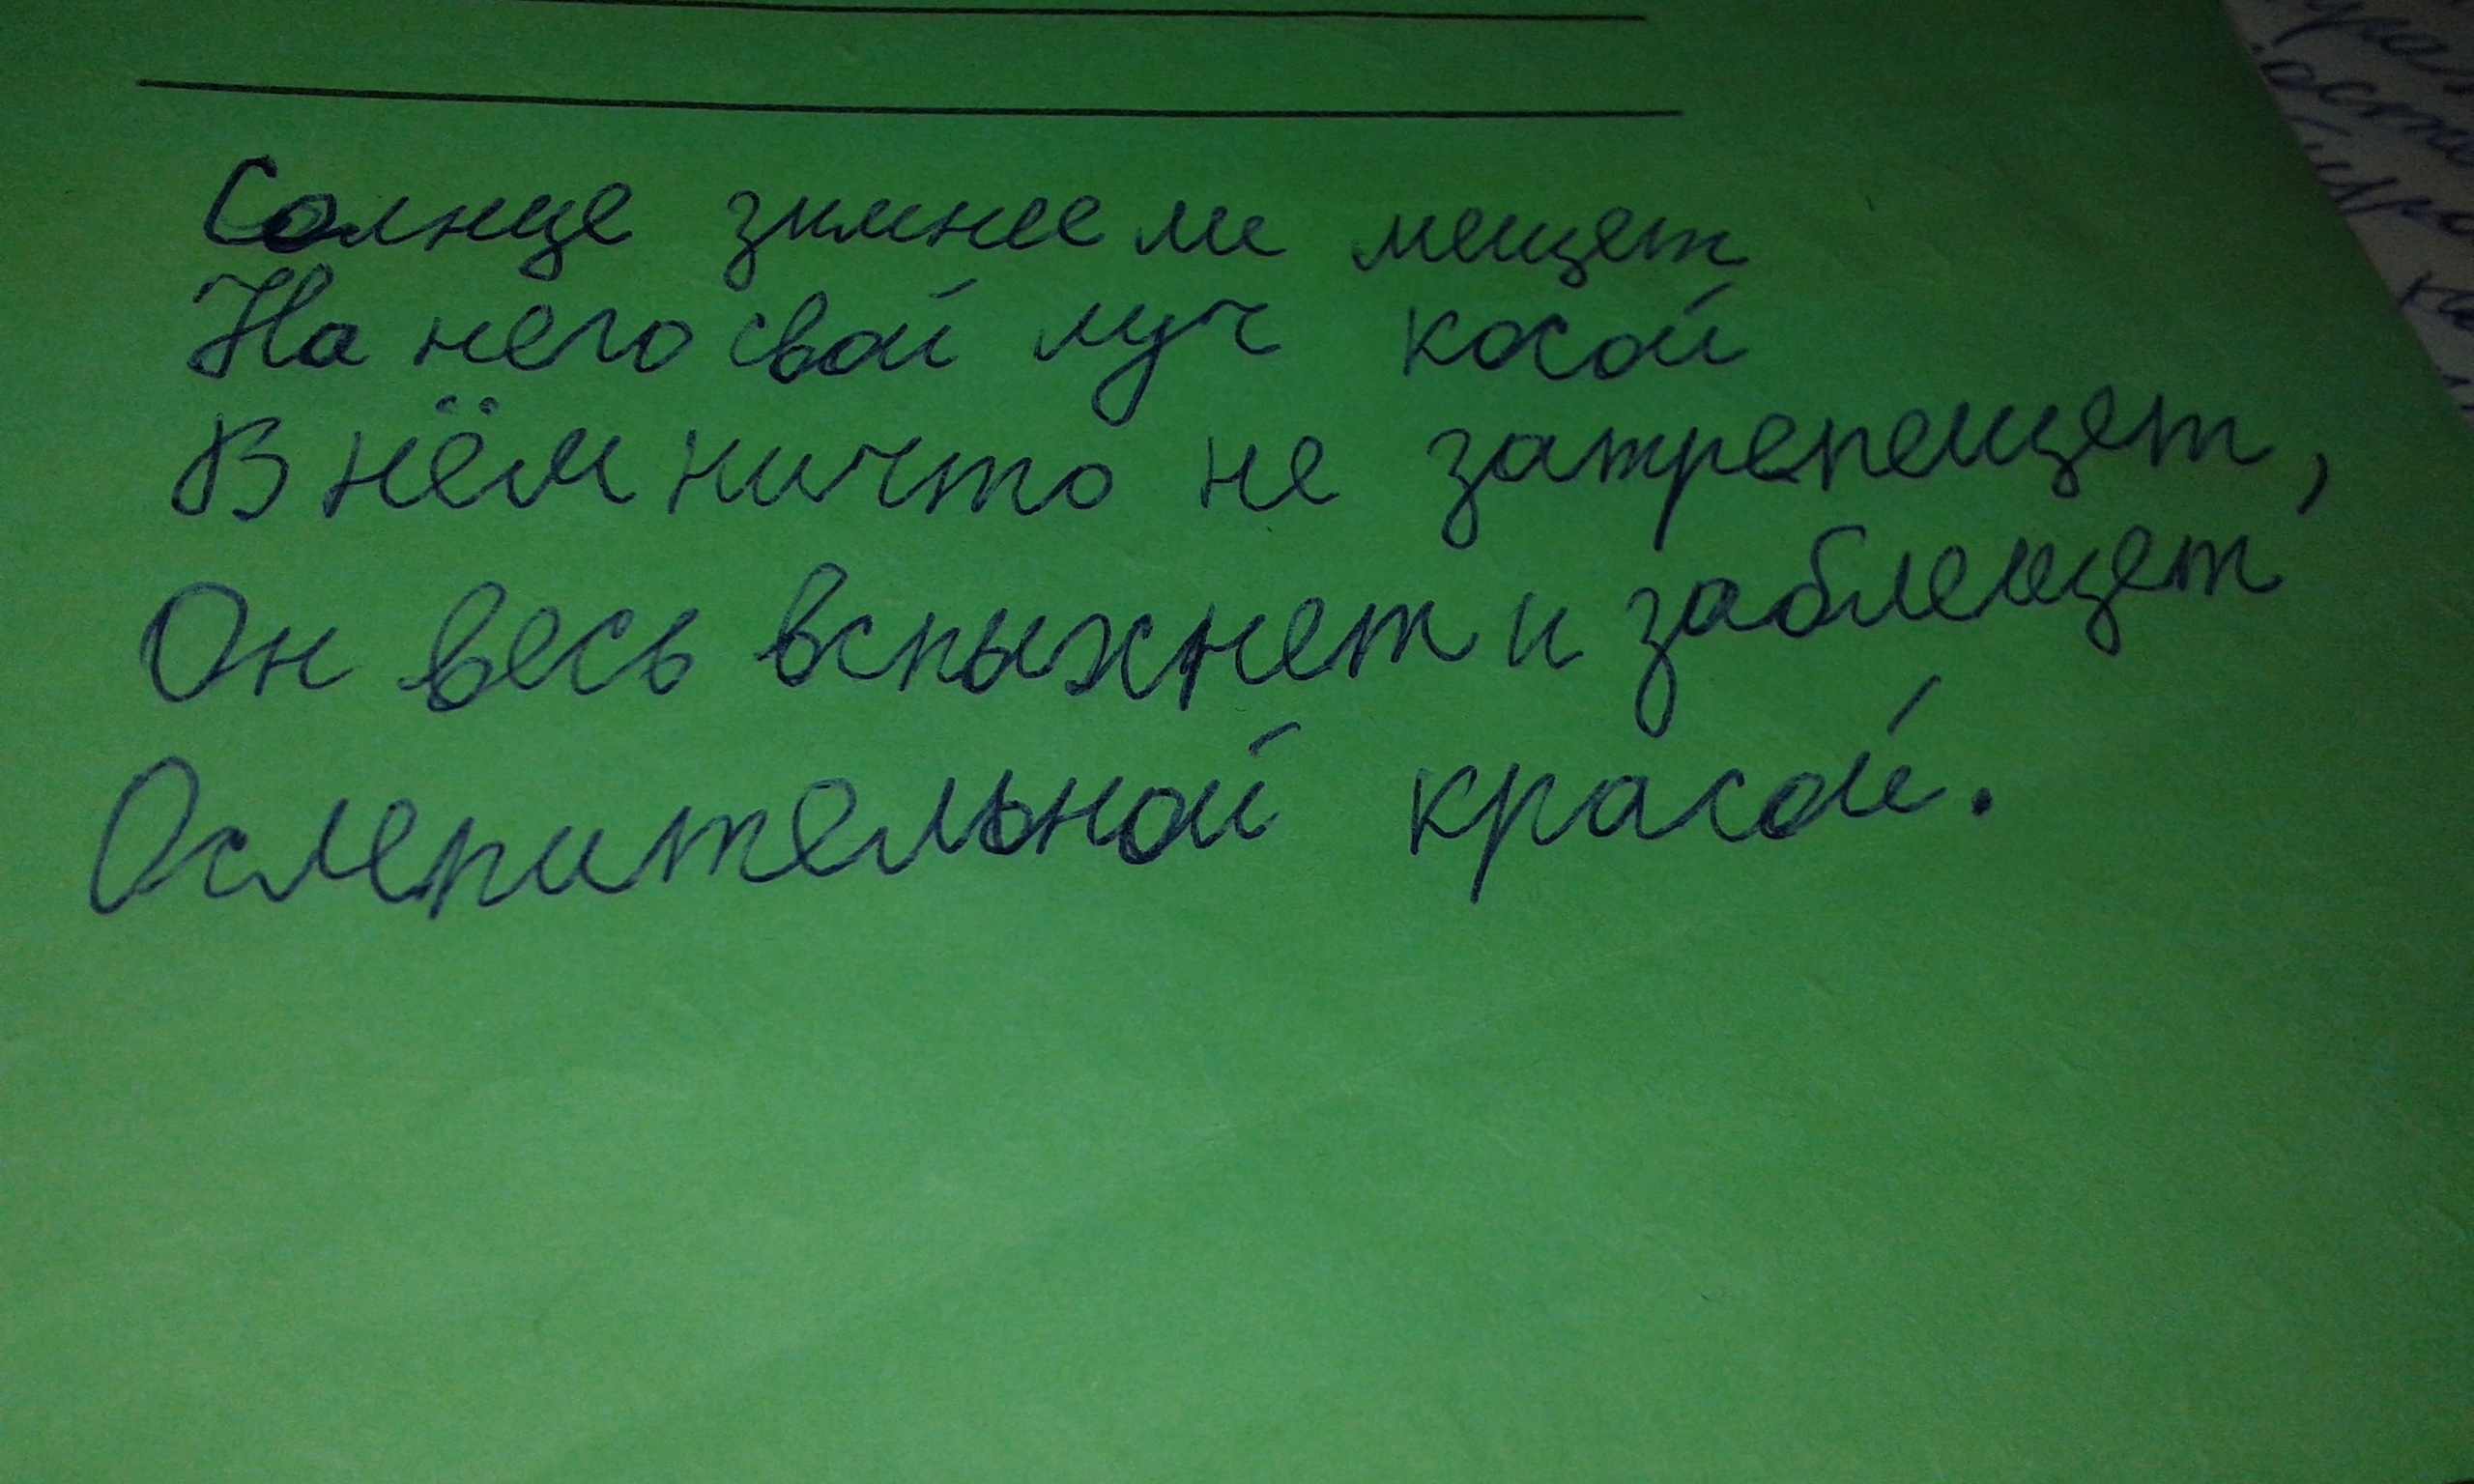 Солнце зимнее ли мещет
На него свой луч косой
В нём ничто не затрепещет,
Он весь вспыхнет и заблещет
Ослепительной красой.